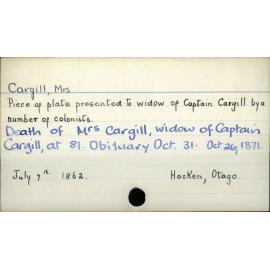 Cargill, Mrs
Piece of plate presented to widow of Captain Cargill by a
number of colonists.
Death of Mrs Cargill, widow of Captain
Cargill, at 81. Obituary Oct. 31. Oct 26, 1871.
July 7th. 1862. Hocken, Otago.